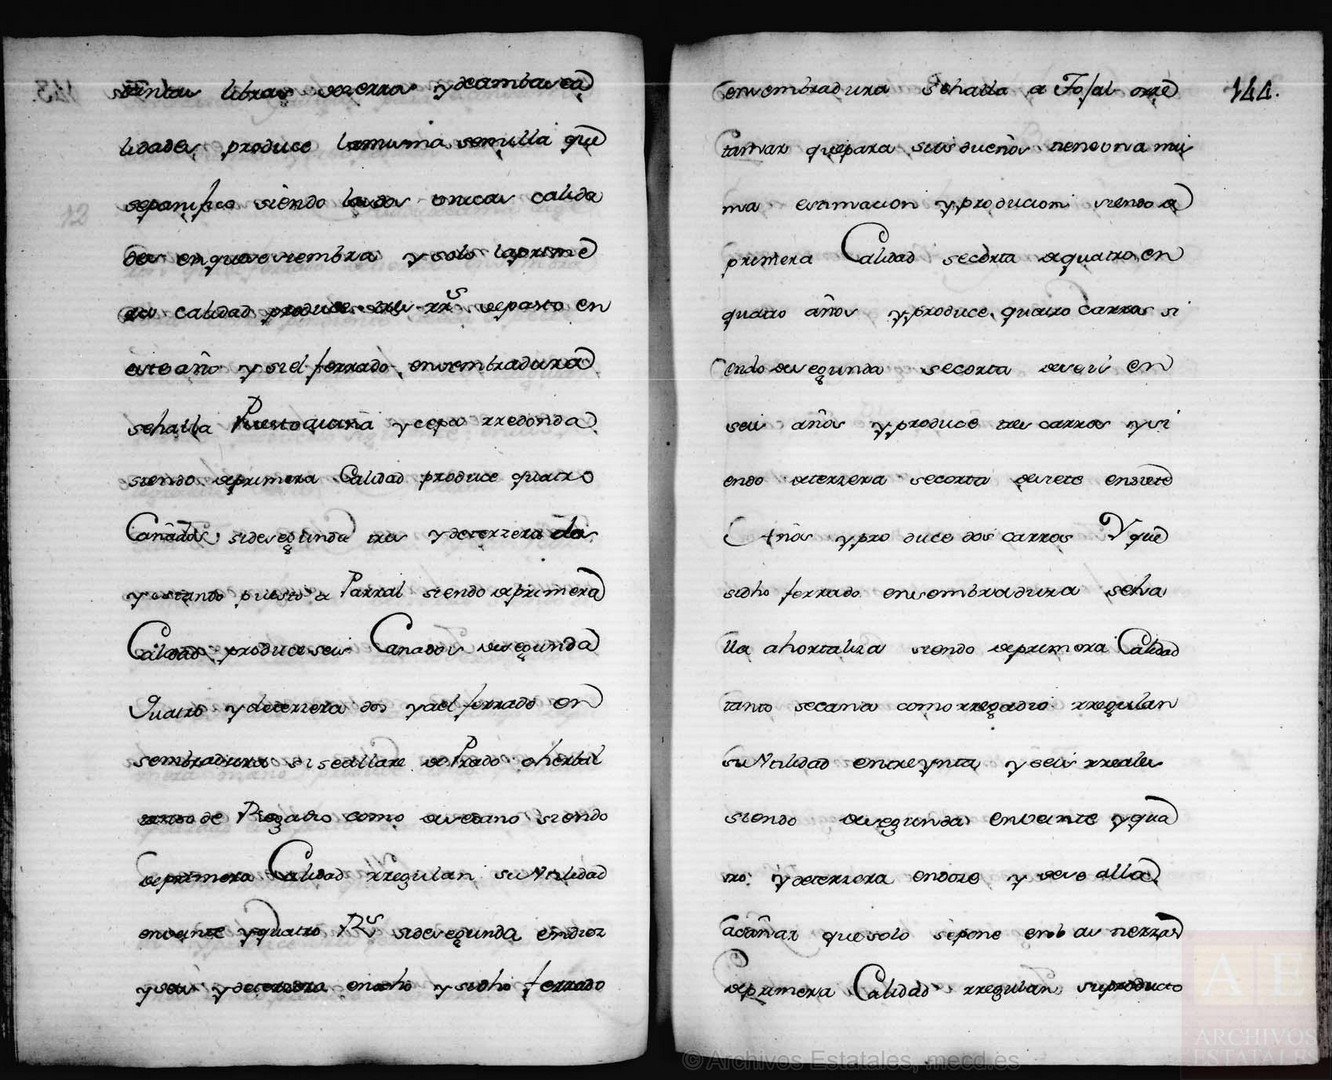 libras de zerro y de ambas ca
lidades produce la misma semilla que
se panifica siendo las dos unicas calida
des en que se siembra y solo la prime
ra calidad produce tres rrs de pasto en
este año y si el ferrado en sembradura
se halla Puesto a viña y cepa rredonda
siendo de primera Calidad produce quatro
Cañados, si de segunda tres y de terzera dos
y estando puesto a Parral siendo de primera
Calidad produce seis Canados de segunda
Quatro y de terzera dos y a el ferrado en
sembradura si se allare de Prado o herbal
tanto de Regadio como de secano siendo
de primera Calidad rregulan su Vtilidad
en veinte y quatro Rs si de segunda en diez
y seis y de terzera en ocho y si dho ferrado
143.
12
en sembradura se halla a Tojal o rre
tamar que para sus dueños tiene una mis
ma estimacion y producion siendo de
primera Calidad se corta de quatro en
quatro años y produce quatro carros si
endo de segunda se corta de seis en
seis años y produce tres carros y si
endo de terzera se corta de siete en siete
Años y pro duce dos carros Y que
si dho ferrado en sembradura se ha
lla a hortaliza siendo de primera Calidad
tanto secana como rregadio rregulan
su Vtilidad en treynta y seis rreales
siendo de segunda en veinte y qua
tro y de terzera en doze y
que solo se pone en las tierras
de primera Calidad rregulan su producto
144.
© Archivos Estatales, mecd.es
AE
ARCHIVOS
ESTATALES